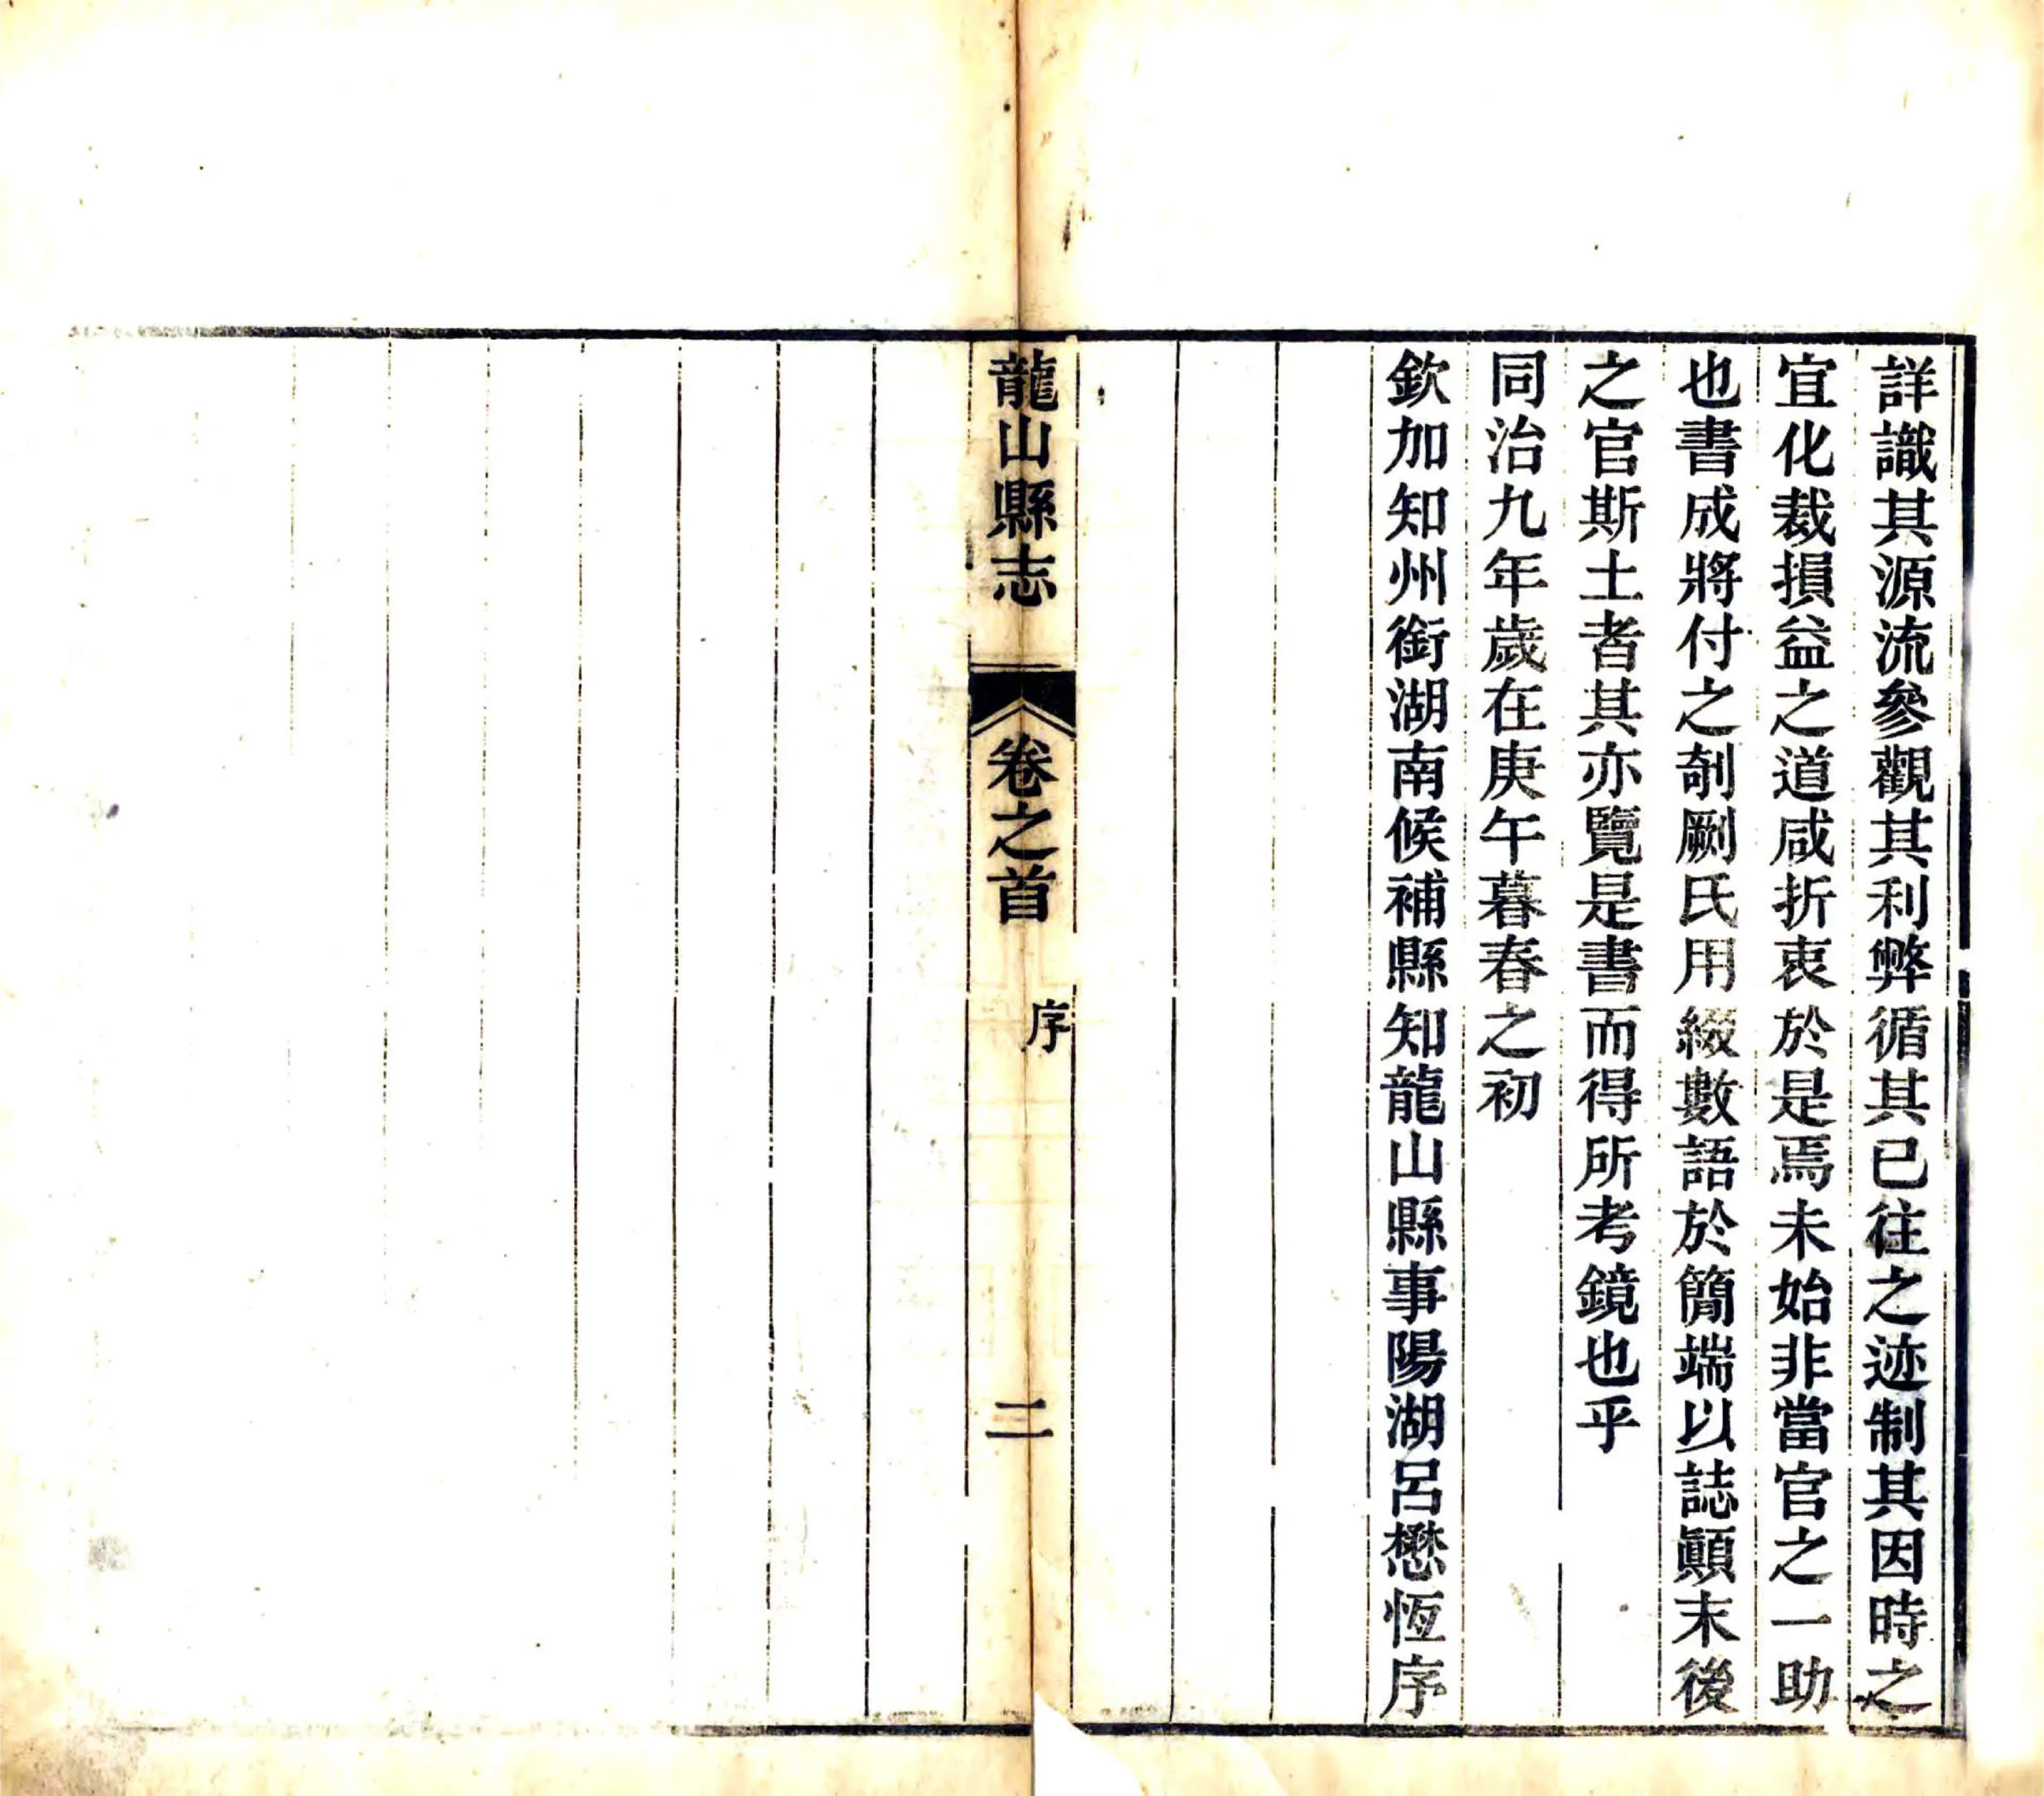 詳識其源流參觀其利弊循其已往之迹制其因時之
宜化裁損益之道咸折衷於是焉未始非當官之一助
也書成將付之剞劂氏用綴數語於簡端以誌顚末後
之官斯土者其亦覽是書而得所考鏡也乎
同治九年歲在庚午暮春之初
欽加知州銜湖南候補縣知龍山縣事陽湖呂懋恆序
龍山縣志 卷之首 序 二